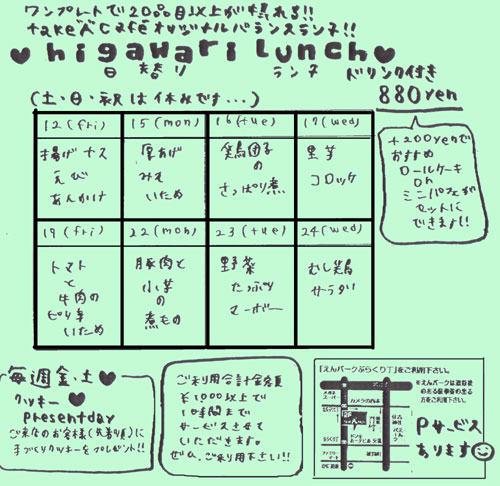 ワンプレートで20品目以上が摂れる!!
take'z Cafe オリジナルバランスランチ!!
♥higawari Lunch♥
日替り ランチ ドリンク付き
880yen
(土・日・祝は休みです...)
12(fri) 15(mon) 16(tue) 17(wed)
揚げナス
えび
あんかけ
厚あげ
みそ
いため
鶏団子
の
さっぱり煮
里芋
コロッケ
+200yenで
おすすめ
ロールケーキ
or
ミニパフェが
セットに
できます!!
19(fri) 22(mon) 23(tue) 24(wed)
トマト
と
牛肉の
ピリ辛
いため
豚肉と
小芋の
煮もの
野菜
たっぷり
マーボー
むし鶏
サラダ
毎週金・土♥
クッキー♥
presentday
ご来店のお客様(先着順)に
手づくりクッキーをプレゼント!!
ご利用合計金額
¥1000以上で
1時間まで
サービスさせて
いただきます。
ぜひ、ご利用下さい!!
「えんパークぶらくり丁」をご利用下さい。
カメラの西本
Pサービス
あります